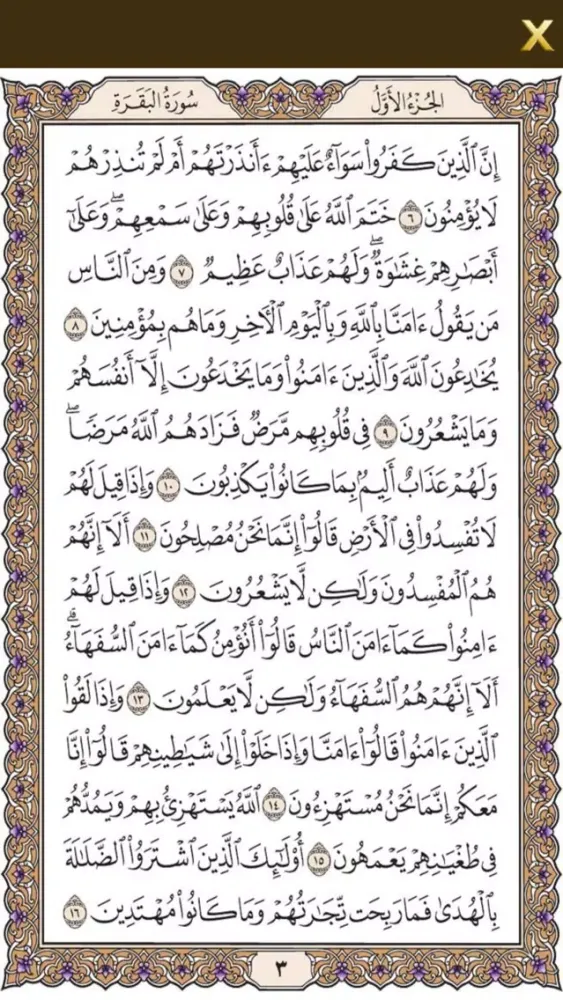 X
سُورَةُ البَقَرَةِ
الجُزْءُ الأَوَّلُ
إِنَّ ٱلَّذِينَ كَفَرُوا۟ سَوَآءٌ عَلَيْهِمْ ءَأَنذَرْتَهُمْ أَمْ لَمْ تُنذِرْهُمْ
لَا يُؤْمِنُونَ ٦ خَتَمَ ٱللَّهُ عَلَىٰ قُلُوبِهِمْ وَعَلَىٰ سَمْعِهِمْ ۖ وَعَلَىٰٓ
أَبْصَٰرِهِمْ غِشَٰوَةٌ ۖ وَلَهُمْ عَذَابٌ عَظِيمٌ ٧ وَمِنَ ٱلنَّاسِ
مَن يَقُولُ ءَامَنَّا بِٱللَّهِ وَبِٱلْيَوْمِ ٱلْـَٔاخِرِ وَمَا هُم بِمُؤْمِنِينَ ٨
يُخَٰدِعُونَ ٱللَّهَ وَٱلَّذِينَ ءَامَنُوا۟ وَمَا يَخْدَعُونَ إِلَّآ أَنفُسَهُمْ
وَمَا يَشْعُرُونَ ٩ فِى قُلُوبِهِم مَّرَضٌ فَزَادَهُمُ ٱللَّهُ مَرَضًا ۖ
وَلَهُمْ عَذَابٌ أَلِيمٌۢ بِمَا كَانُوا۟ يَكْذِبُونَ ١٠ وَإِذَا قِيلَ لَهُمْ
لَا تُفْسِدُوا۟ فِى ٱلْأَرْضِ قَالُوٓا۟ إِنَّمَا نَحْنُ مُصْلِحُونَ ١١ أَلَآ إِنَّهُمْ
هُمُ ٱلْمُفْسِدُونَ وَلَٰكِن لَّا يَشْعُرُونَ ١٢ وَإِذَا قِيلَ لَهُمْ
ءَامِنُوا۟ كَمَآ ءَامَنَ ٱلنَّاسُ قَالُوٓا۟ أَنُؤْمِنُ كَمَآ ءَامَنَ ٱلسُّفَهَآءُ ۗ
أَلَآ إِنَّهُمْ هُمُ ٱلسُّفَهَآءُ وَلَٰكِن لَّا يَعْلَمُونَ ١٣ وَإِذَا لَقُوا۟
ٱلَّذِينَ ءَامَنُوا۟ قَالُوٓا۟ ءَامَنَّا وَإِذَا خَلَوْا۟ إِلَىٰ شَيَٰطِينِهِمْ قَالُوٓا۟ إِنَّا
مَعَكُمْ إِنَّمَا نَحْنُ مُسْتَهْزِءُونَ ١٤ ٱللَّهُ يَسْتَهْزِئُ بِهِمْ وَيَمُدُّهُمْ
فِى طُغْيَٰنِهِمْ يَعْمَهُونَ ١٥ أُو۟لَٰٓئِكَ ٱلَّذِينَ ٱشْتَرَوُا۟ ٱلضَّلَٰلَةَ
بِٱلْهُدَىٰ فَمَا رَبِحَت تِّجَٰرَتُهُمْ وَمَا كَانُوا۟ مُهْتَدِينَ ١٦
٣